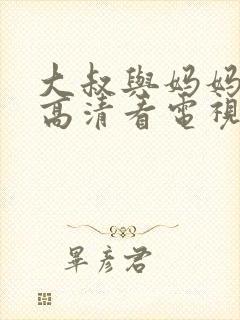 大叔與媽媽
高清看電視
畢彥君